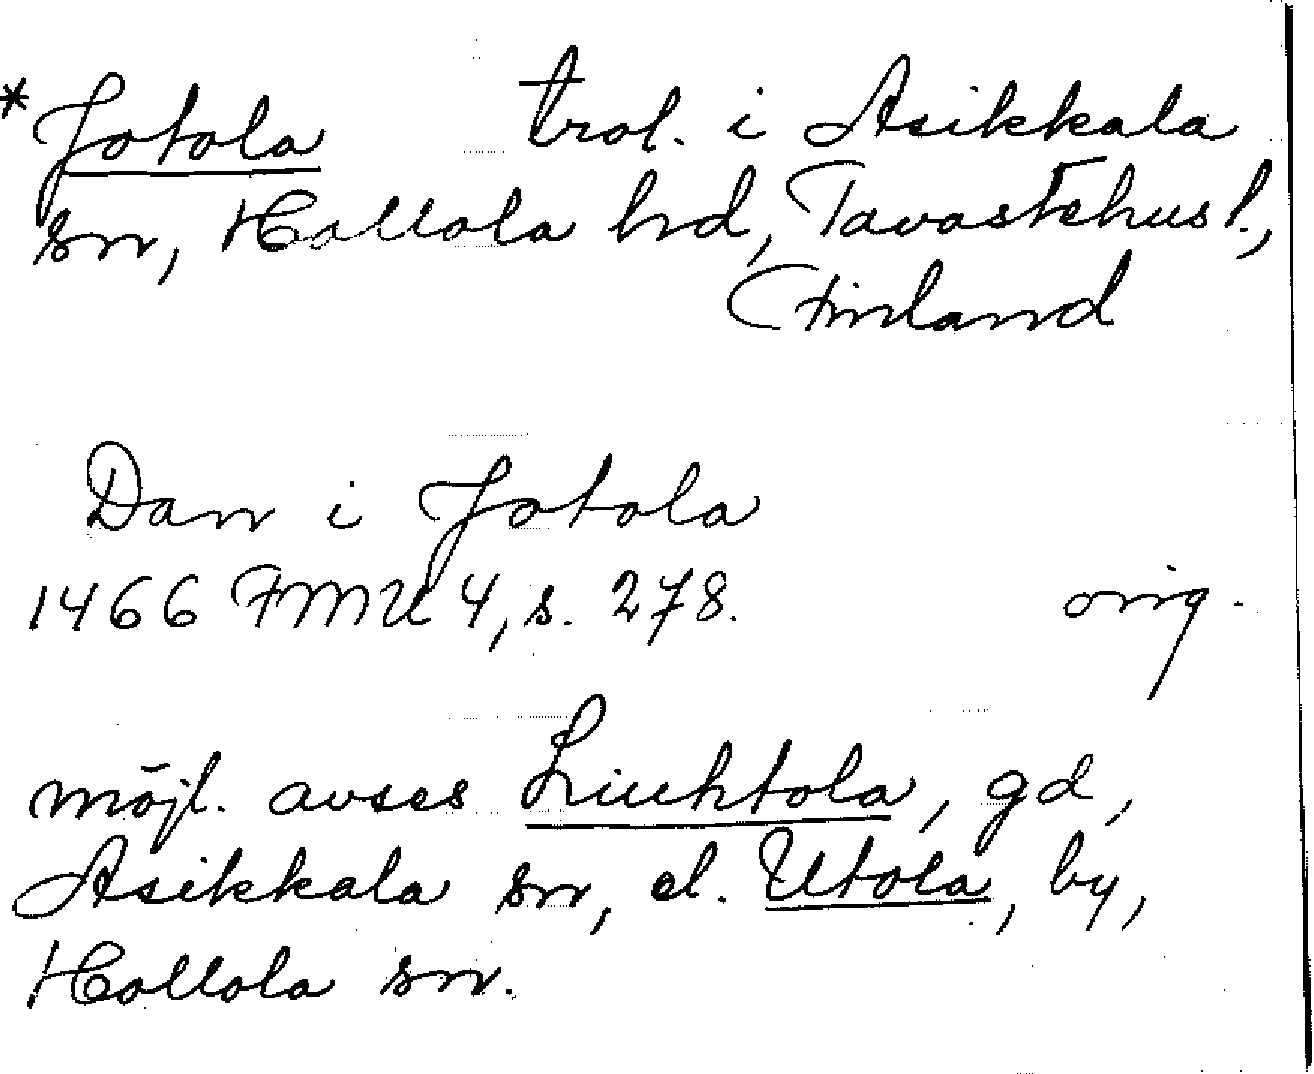 * Jotola trol. i Asikkala
sn, Hollola hd, Tavastehus l.,
Finland
Dan i Jotola
1466 FMU 4, s. 278. orig.
möjl. avses Liuhtola, gd,
Asikkala sn, el. Utola, by,
Hollola sn.